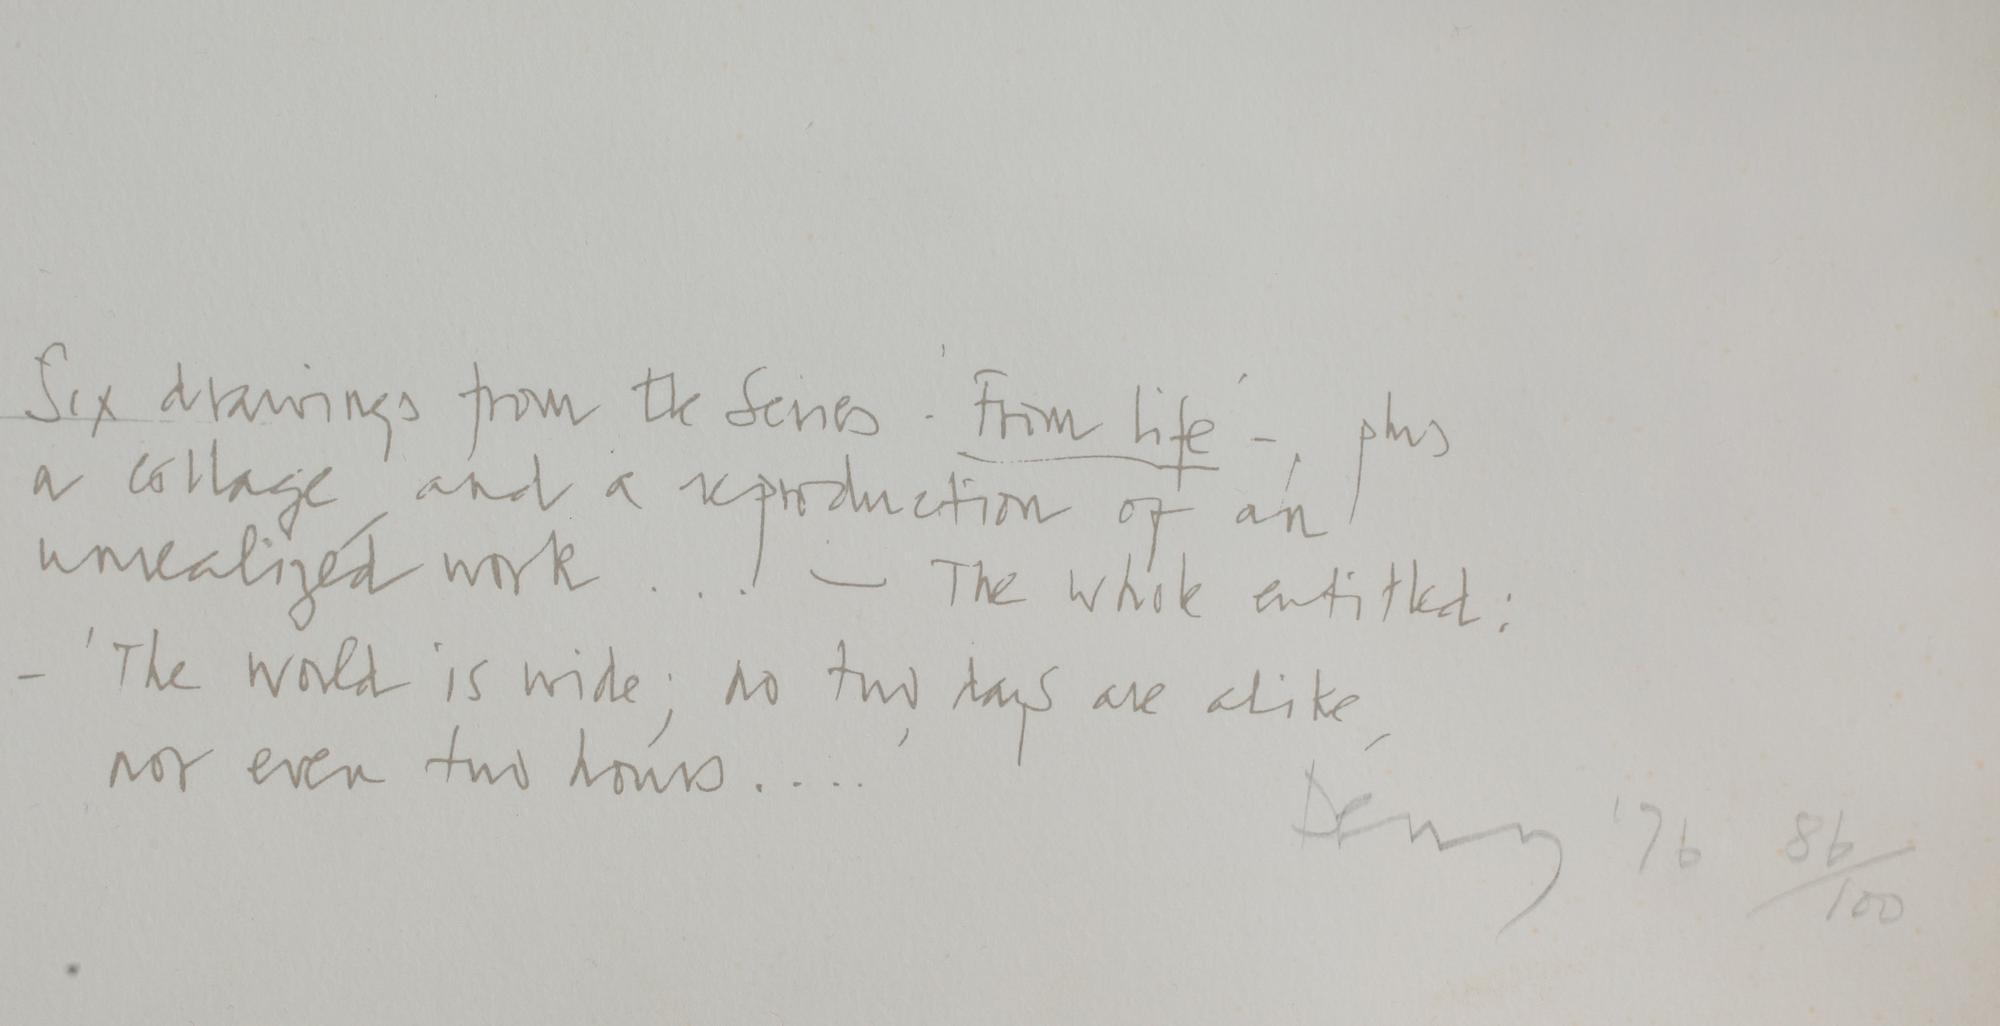 Six drawings from the Series - 'From life' -, plus
a collage, and a reproduction of an
unrealized work .... — The whole entitled:
- 'The world is wide; no two days are alike,
nor even two hours.....'
Denny '76 86/100